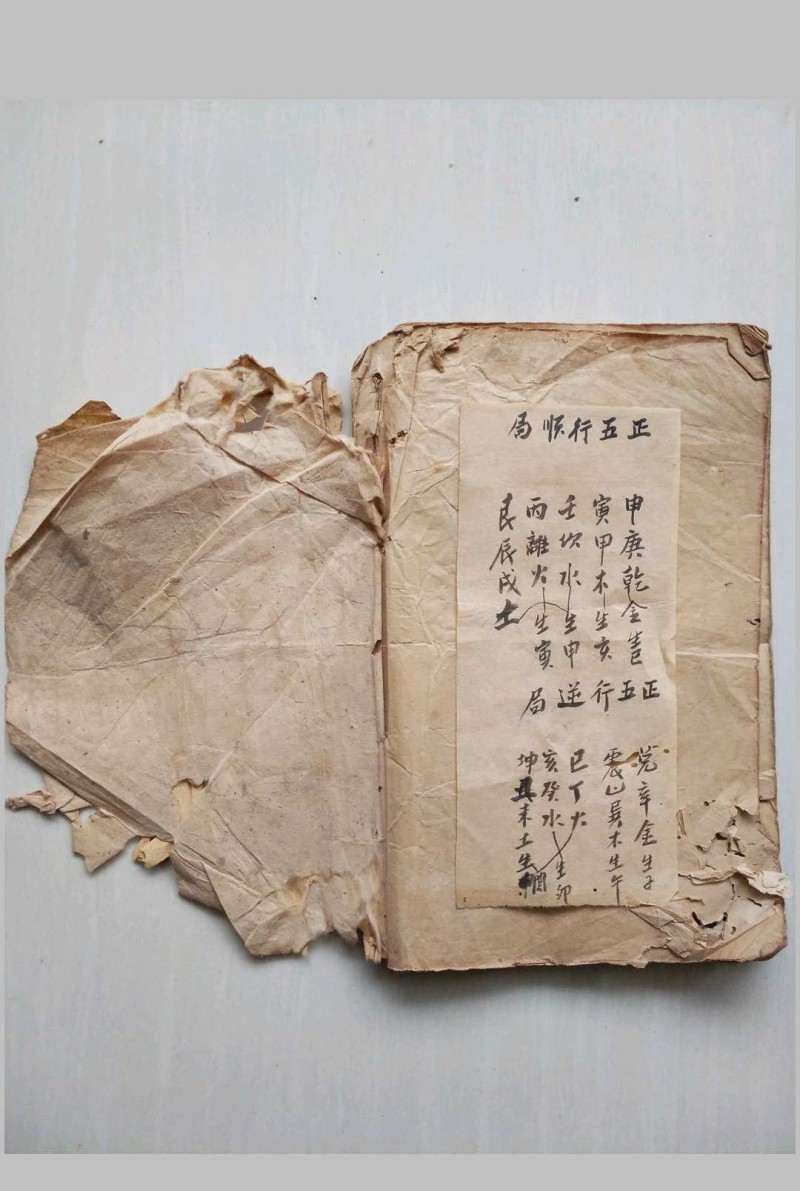 正五行順局
申庚乾金生巳
寅甲木生亥
壬坎水生申
丙離火生寅
艮辰戌土
正五行逆局
兌辛金生子
震乙巽木生午
巳丁火
亥癸水生卯
坤丑未土生酉